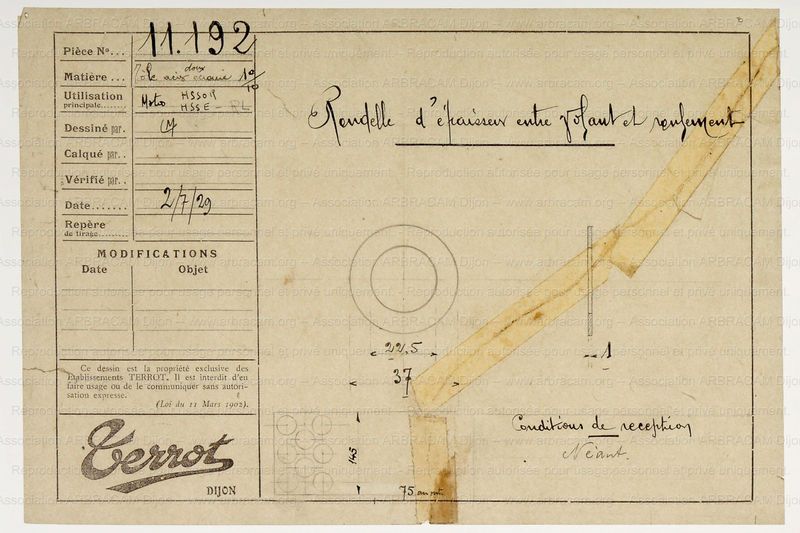 Pièce No... 11.192
Matière ... Tôle acier doux 10/10
Utilisation Moto HSSOR
principale........ HSSE - RL
Dessiné par. CM
Calqué par. .
Vérifié par. .
Date....... 2/7/29
Repère
de tirage.........
MODIFICATIONS
Date Objet
Rondelle d'épaisseur entre volant et roulement
22,5
37
1
Ce dessin est la propriété exclusive des
Établissements TERROT. Il est interdit d'en
faire usage ou de le communiquer sans autori-
sation expresse.
(Loi du 11 Mars 1902).
Terrot
DIJON
145
75
Conditions de reception
Néant.
Association ARBRACAM Dijon – www.arbracam.org
Reproduction autorisée pour usage personnel et privé uniquement.